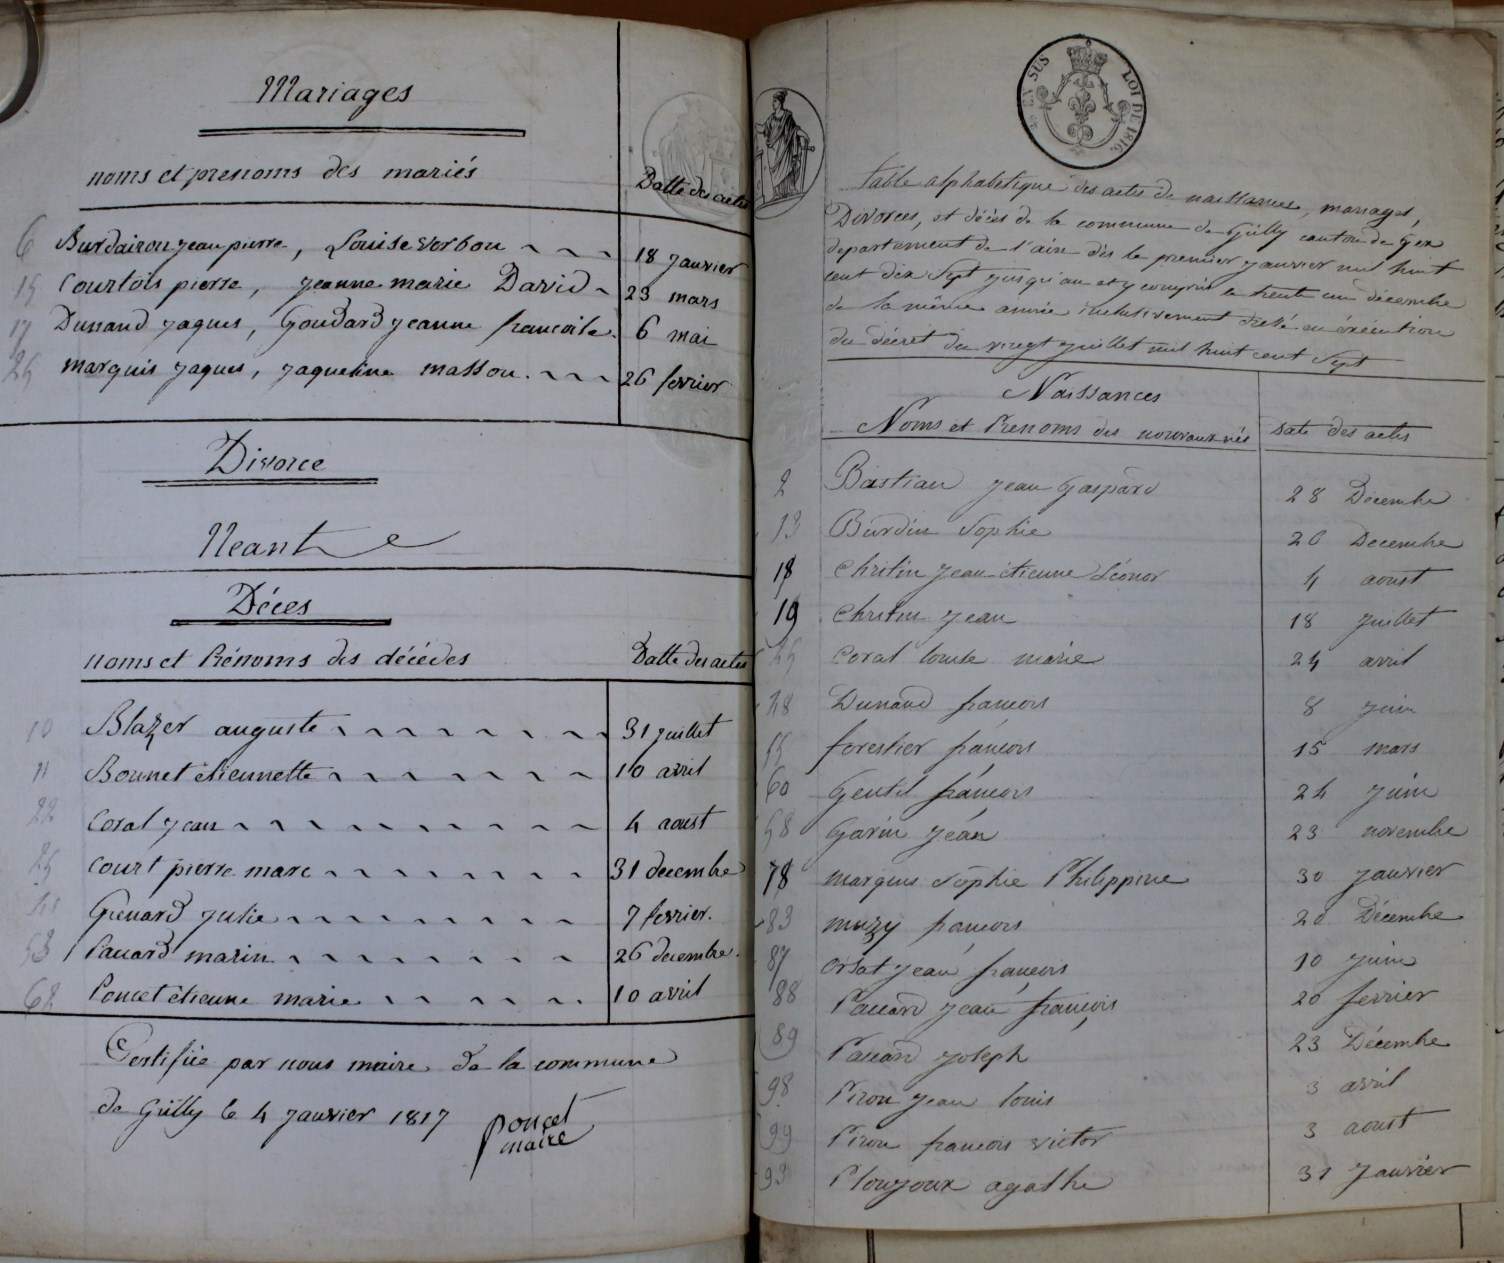 Mariages
noms et prenoms des mariés
Datte des actes
6 Burdairon jean pierre, Louise Vorbou 18 janvier
15 Courtois pierre, jeanne marie David 23 mars
17 Dunand jaques, Goudard jeanne francoise 6 mai
25 marquis jaques, jaqueline masson 26 fevrier
Divorce
Neant
Déces
noms et Prénoms des décédes Datte des actes
10 Blazer auguste 31 juillet
11 Bonnet étiennette 10 avril
22 Coral jean 4 aoust
25 Court pierre marc 31 decembre
Grenard julie 7 fevrier.
53 Panard marin 26 decembre.
68 Poncet étienne marie 10 avril
Certifiée par nous maire de la commune
de Grilly le 4 janvier 1817
poncet
maire
EN SUS LOI DE 1816.
table alphabetique des actes de naissances, mariages,
Divorces, et décés de la commune de Grilly canton de Gex
departement de l'ain dès le premier janvier mil huit
cent dix Sept jusqu'au et y compris le trente un décembre
de la même année inclusivement dressé en éxécution
du décret du vingt juillet mil huit cent Sept
Naissances
Noms et Prenoms des nouveaux nés date des actes
2 Bastian jean Gaspard 28 Décembre
13 Burdin Sophie 26 Decembre
18 Christin jean etienne Léonor 4 aoust
19 Christin jean 18 juillet
25 Coral louise marie 24 avril
48 Dunand francois 8 juin
55 forestier francois 15 mars
60 Gentil francois 24 juin
58 Garin jean 23 novembre
78 marquis Sophie Philippine 30 janvier
83 muzy francois 20 Décembre
87 orsat jean françois 10 juin
88 Panard jean françois 20 fevrier
89 Panard joseph 23 Décembre
98 Piron jean louis 3 avril
99 Piron francois victor 3 aoust
93 Ploujoux agathe 31 janvier